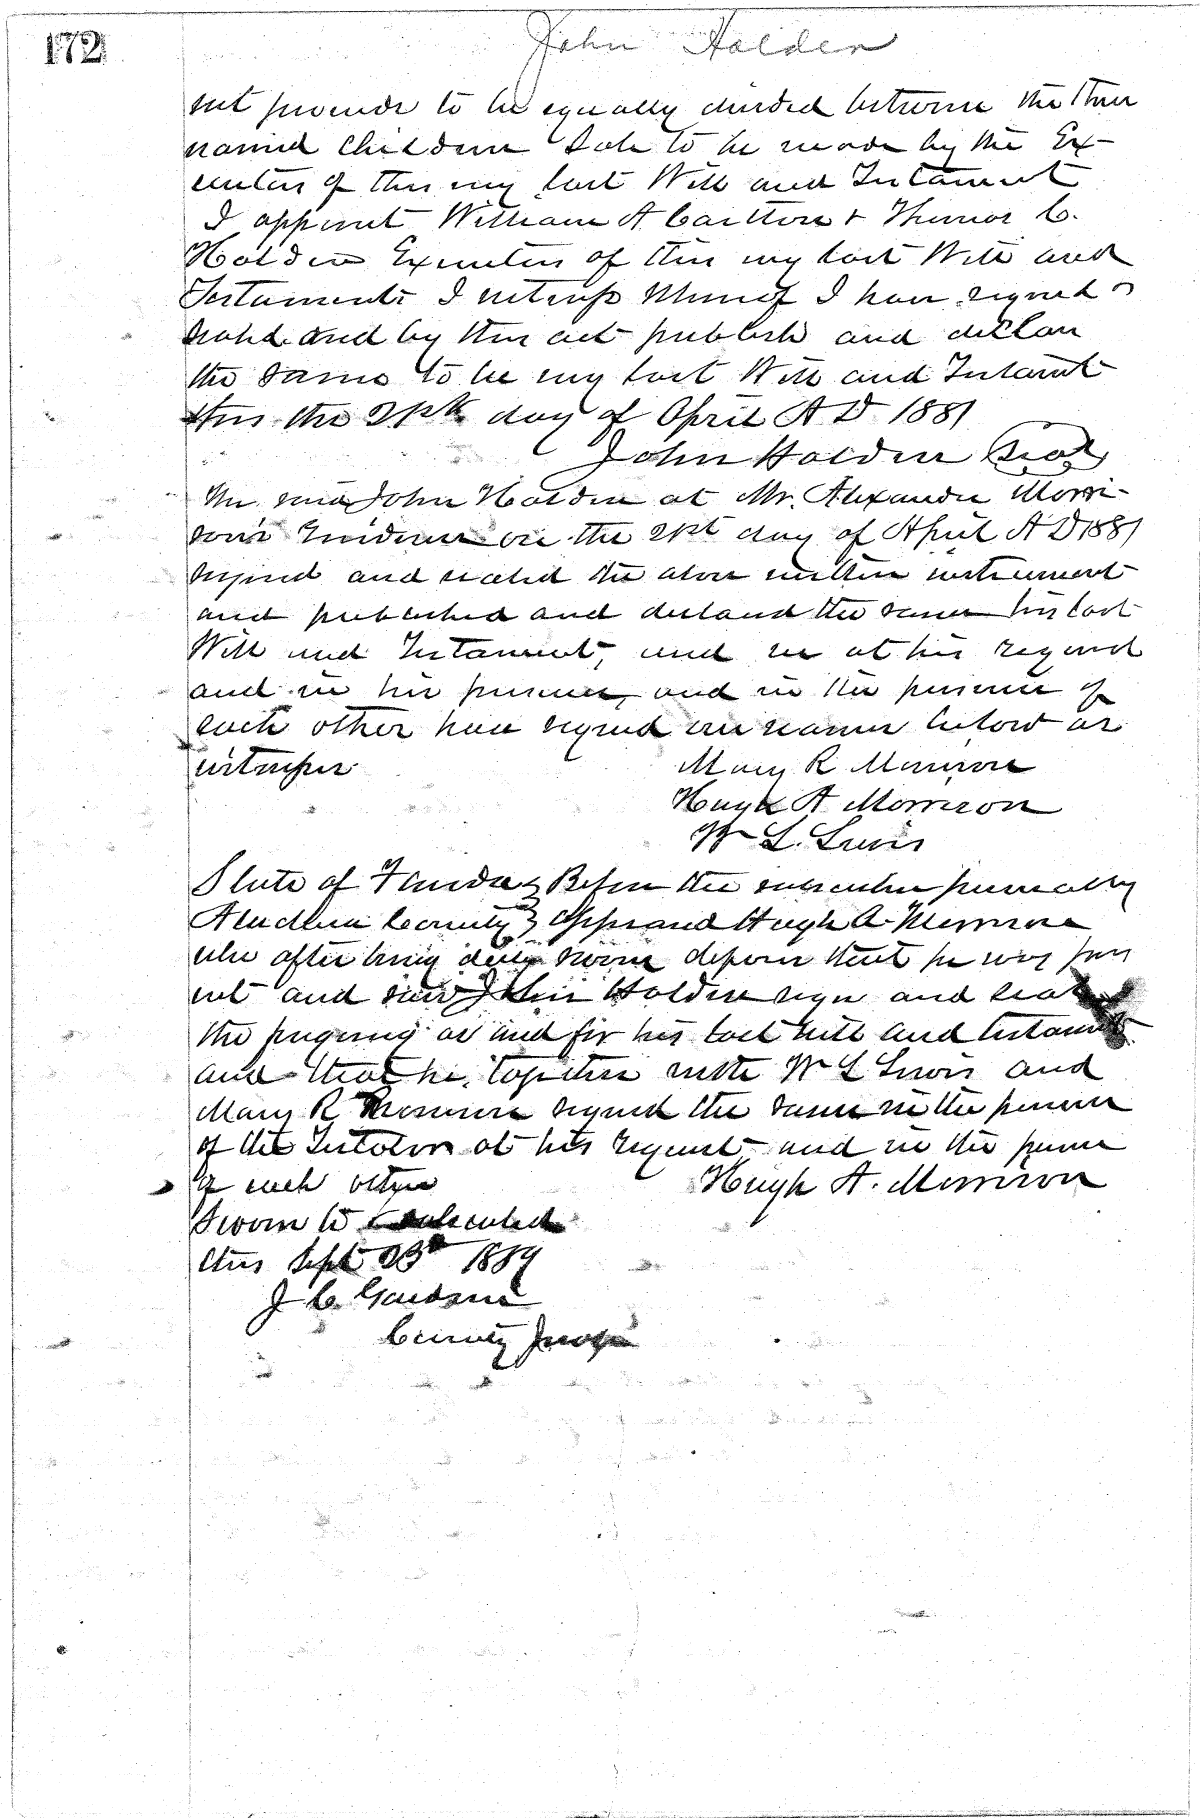 172
John Holden
net proceeds to be equally divided between the three
named children Sale to be made by the Ex-
ecutors of this my last Will and Testament
I appoint William A Carlton & Thomas C.
Holden Executors of this my last Will and
Testament I witness whereof I have signed &
sealed and by this act publish and declare
the same to be my last Will and Testament
this the 21st day of April A D 1881
John Holden Seal
The said John Holden at Mr. Alexander Morri-
son's residence on the 21st day of April A D 1881
signed and sealed the above written instrument
and published and declared the same his last
Will and Testament, and we at his request
and in his presence, and in the presence of
each other have signed our names below as
witnesses
Mary R Morrison
Hugh A Morrison
Wm L. Lewis
State of Florida } Before the subscriber personally
Alachua County } appeared Hugh A. Morrison
who after being duly sworn deposes that he was pres
ent and saw John Holden sign and seal
the foregoing as and for his last will and testament
and that he, together with Wm L Lewis and
Mary R Morrison signed the same in the presence
of the Testator at his request and in the presence
of each other
Hugh A. Morrison
Sworn to & subscribed
this Sept 23d 1889
J C. Gardner
County Judge